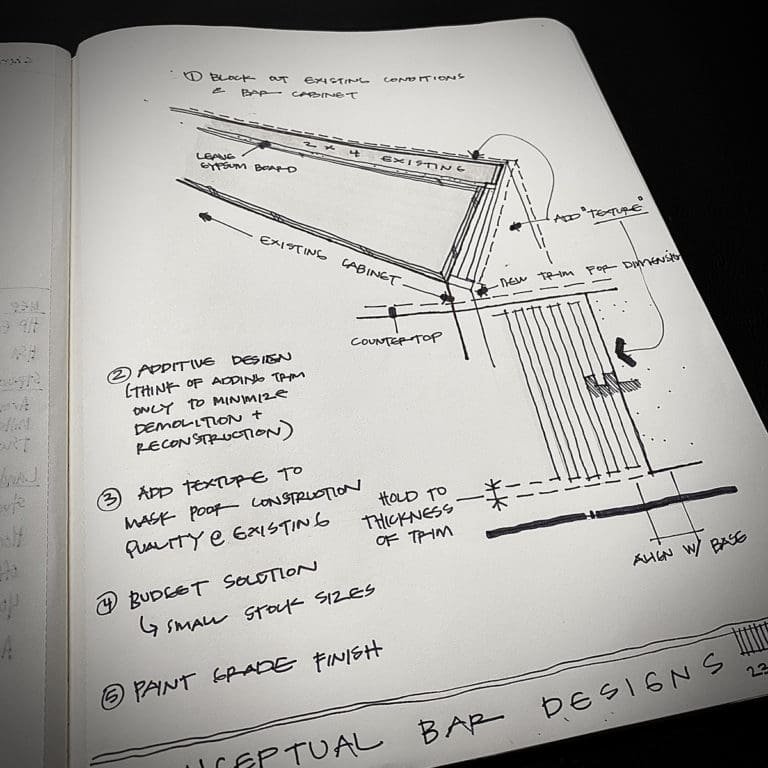 ① BLOCK OUT EXISTING CONDITIONS
& BAR CABINET
2 x 4 EXISTING
LEAVE
GYPSUM BOARD
ADD "TEXTURE"
EXISTING CABINET
NEW TRIM FOR DIMENSION
COUNTERTOP
② ADDITIVE DESIGN
(THINK OF ADDING TRIM
ONLY TO MINIMIZE
DEMOLITION +
RECONSTRUCTION)
③ ADD TEXTURE TO
MASK POOR CONSTRUCTION
QUALITY @ EXISTING
HOLD TO
THICKNESS
OF TRIM
ALIGN W/ BASE
④ BUDGET SOLUTION
↳ SMALL STOCK SIZES
⑤ PAINT GRADE FINISH
CEPTUAL BAR DESIGNS